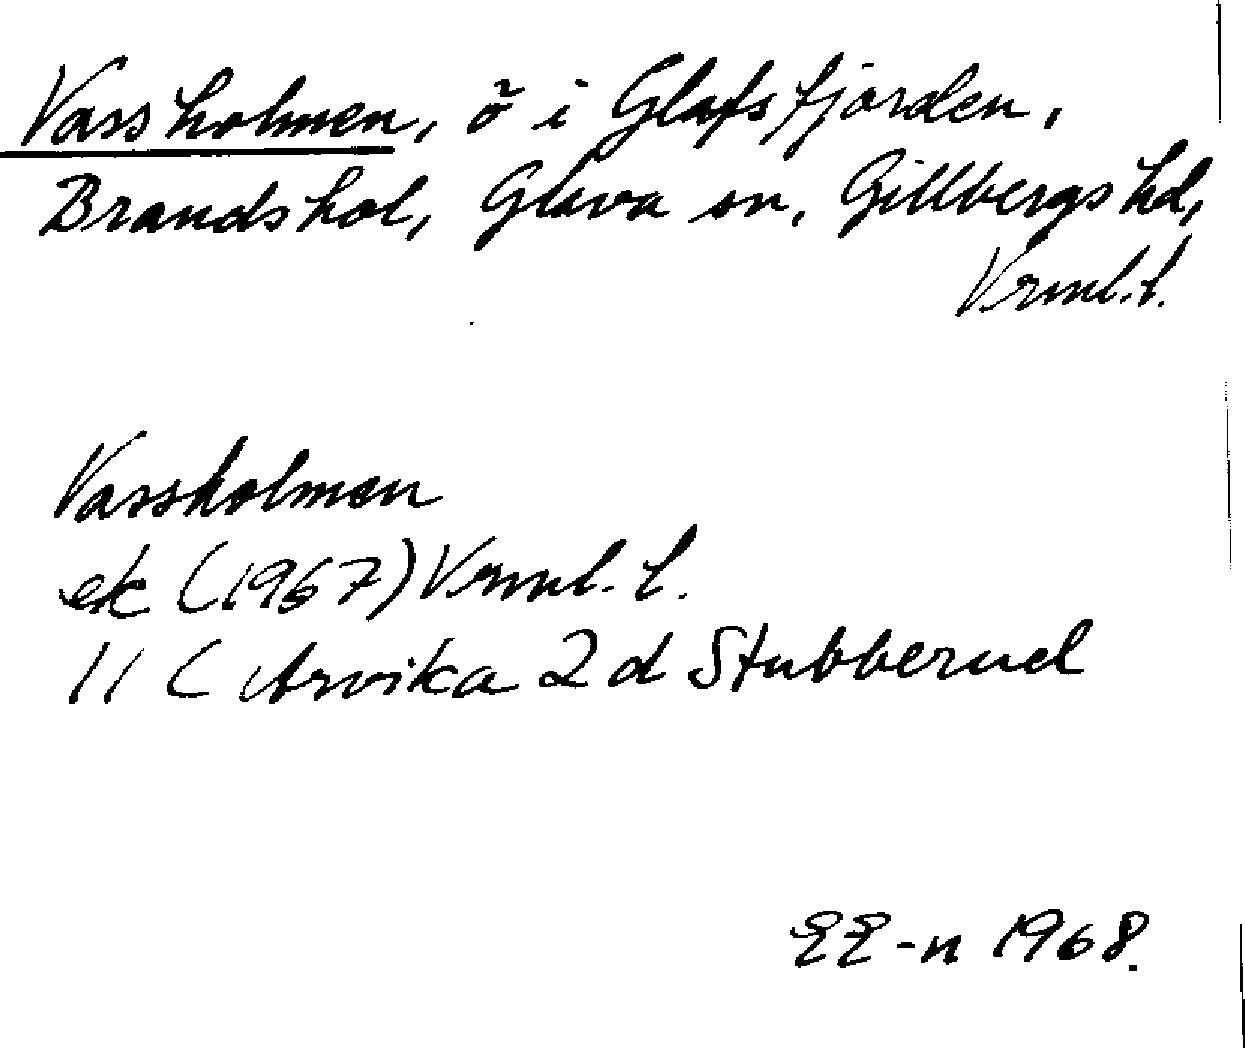 Vassholmen, ö i Glafsfjorden,
Brandshol, Glava sn, Gillbergs hd,
Vrml.l.
Vassholmen
ek (1967) Vrml. l.
11 C Arvika 2 d Stubberud
EE-n 1968.